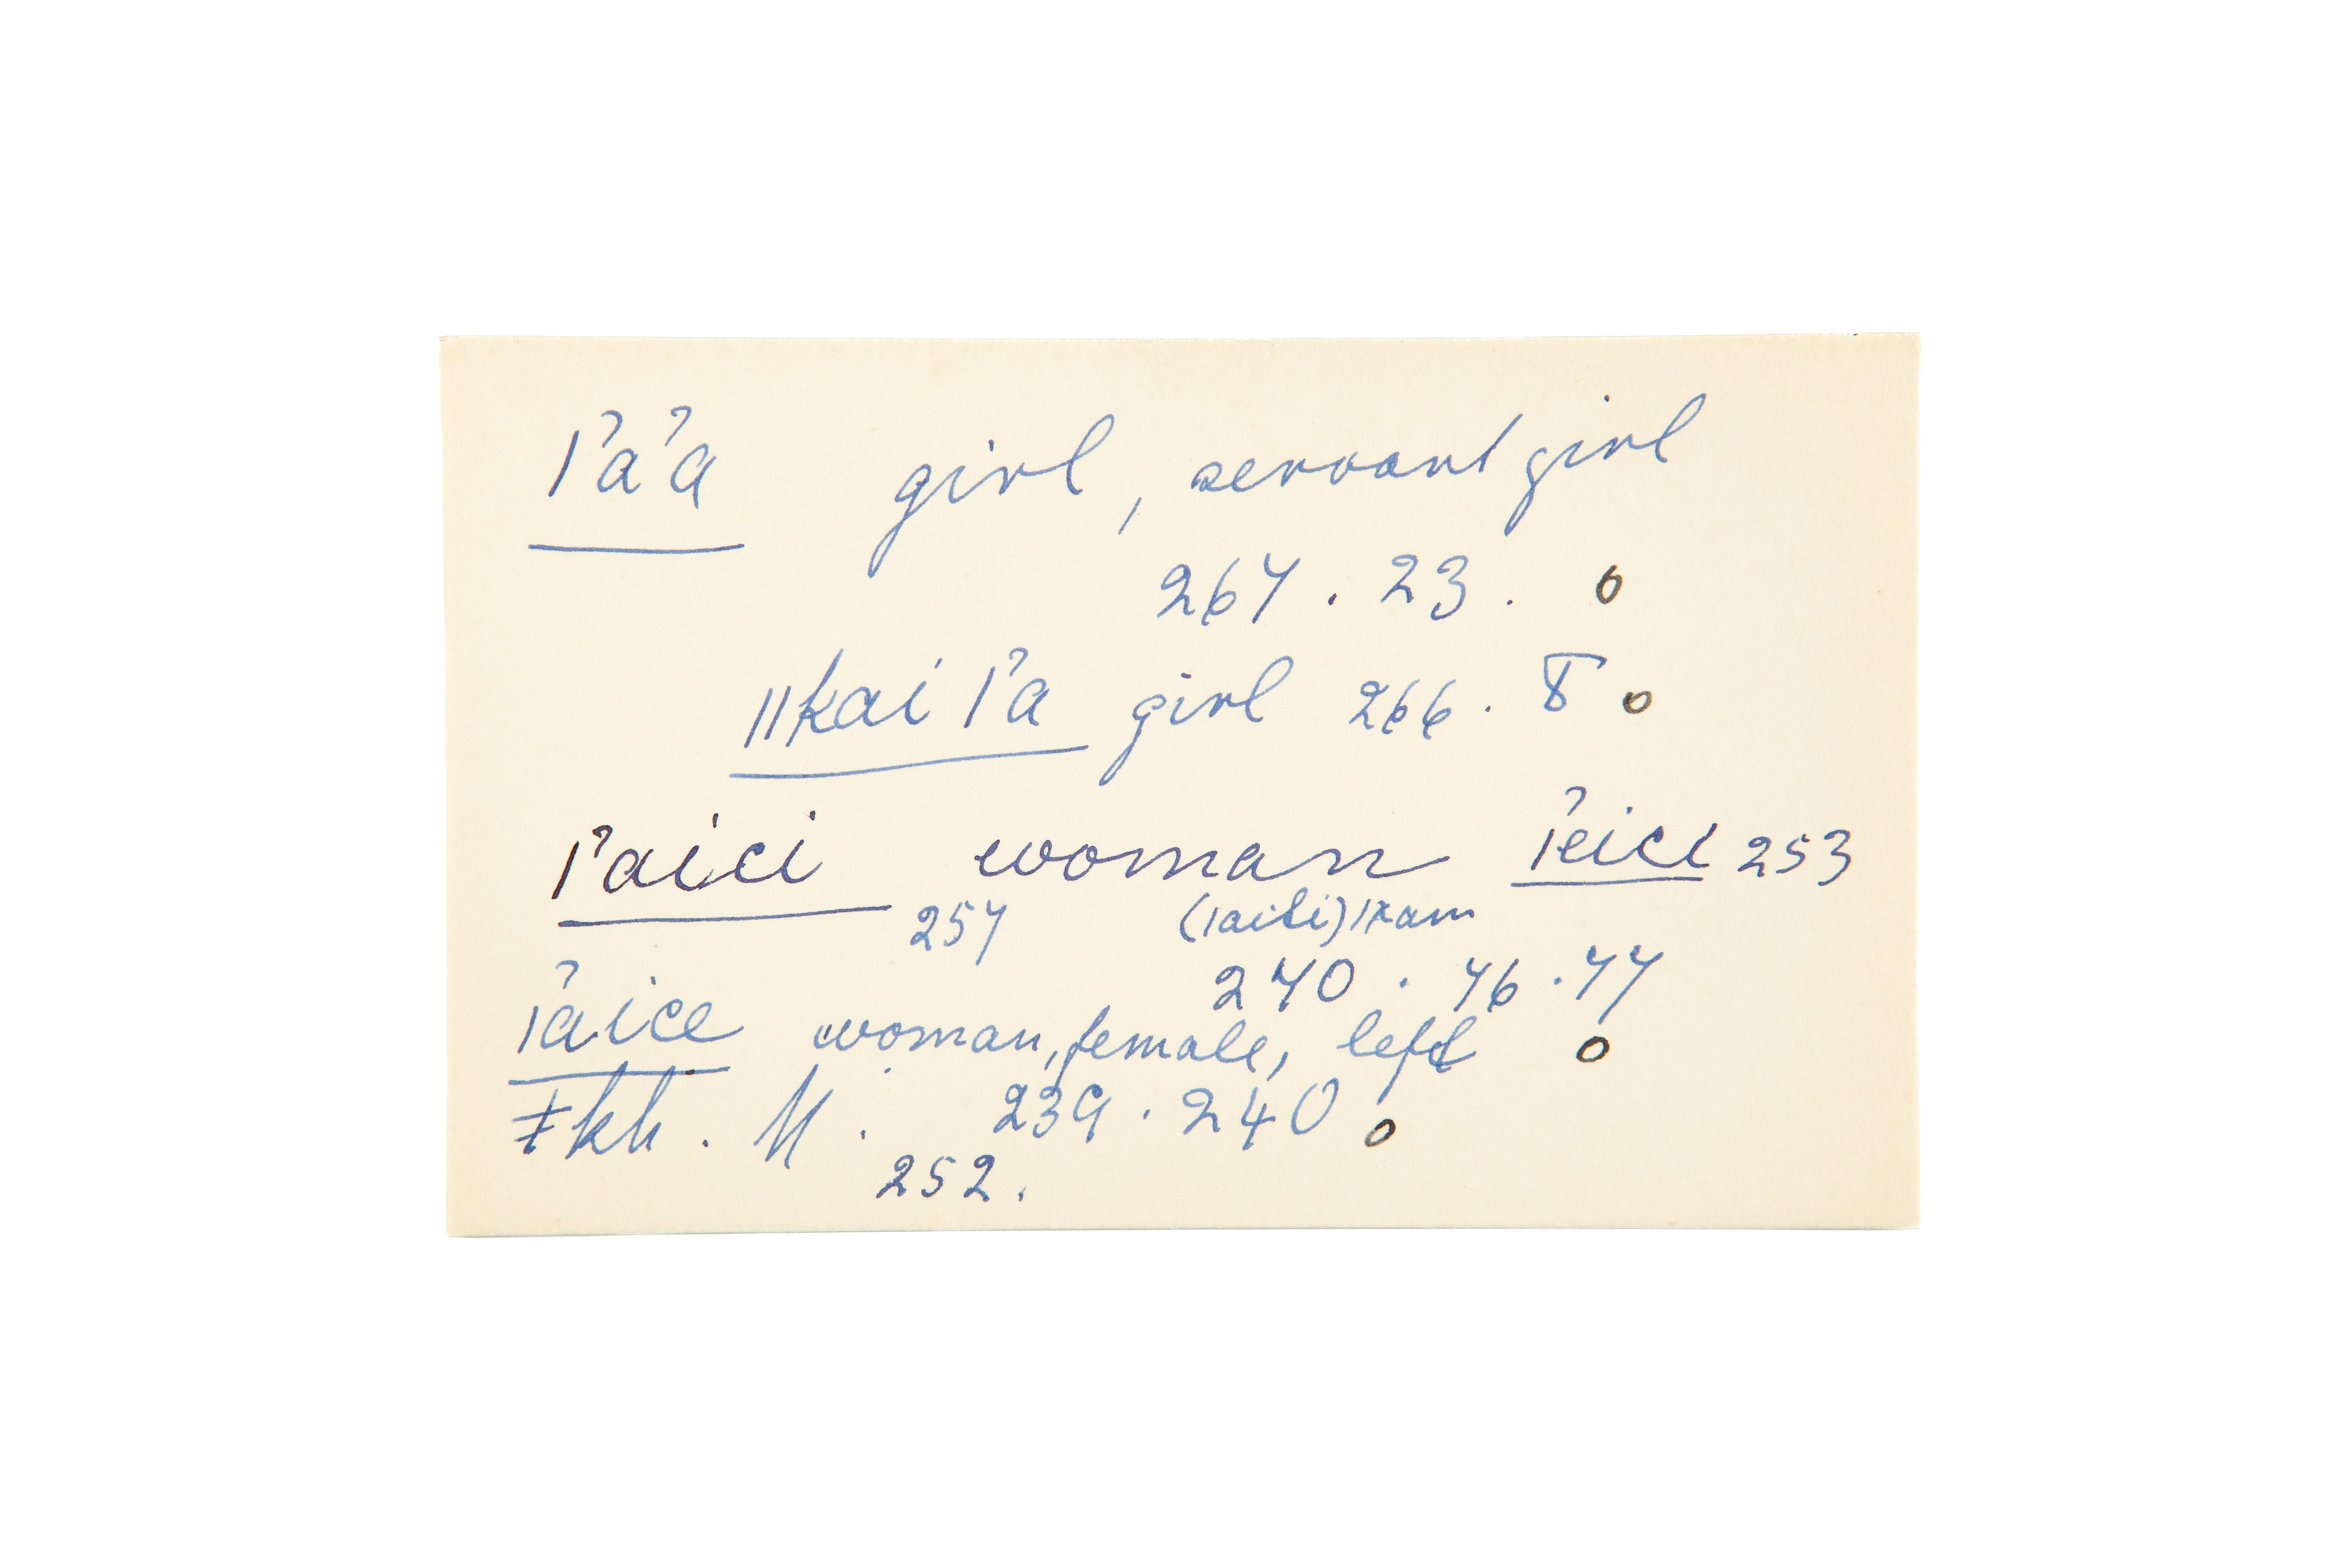 ǀʼaʼa girl, servant girl
267 . 23 . o
ǁkai ǀʼa girl 266 . 8 o
ǀʼaici woman ǀʼeici 253
257 (ǀaiti) ǀxam
240 . 46 . 47
ǀʼaice woman, female, left o
ǂkh. M. 239 . 240 o
252.